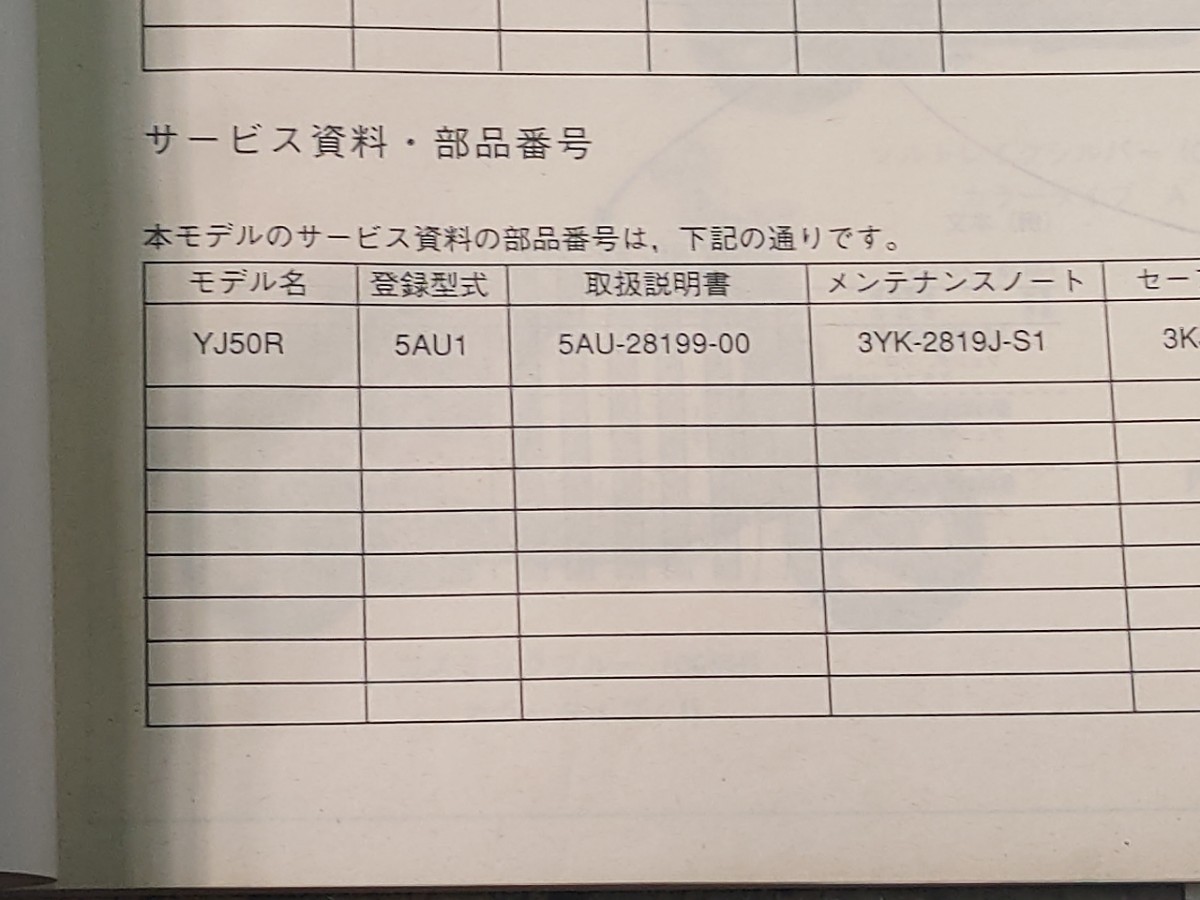 サービス資料・部品番号
本モデルのサービス資料の部品番号は，下記の通りです。
モデル名 登録型式 取扱説明書 メンテナンスノート セー
YJ50R 5AU1 5AU-28199-00 3YK-2819J-S1 3K